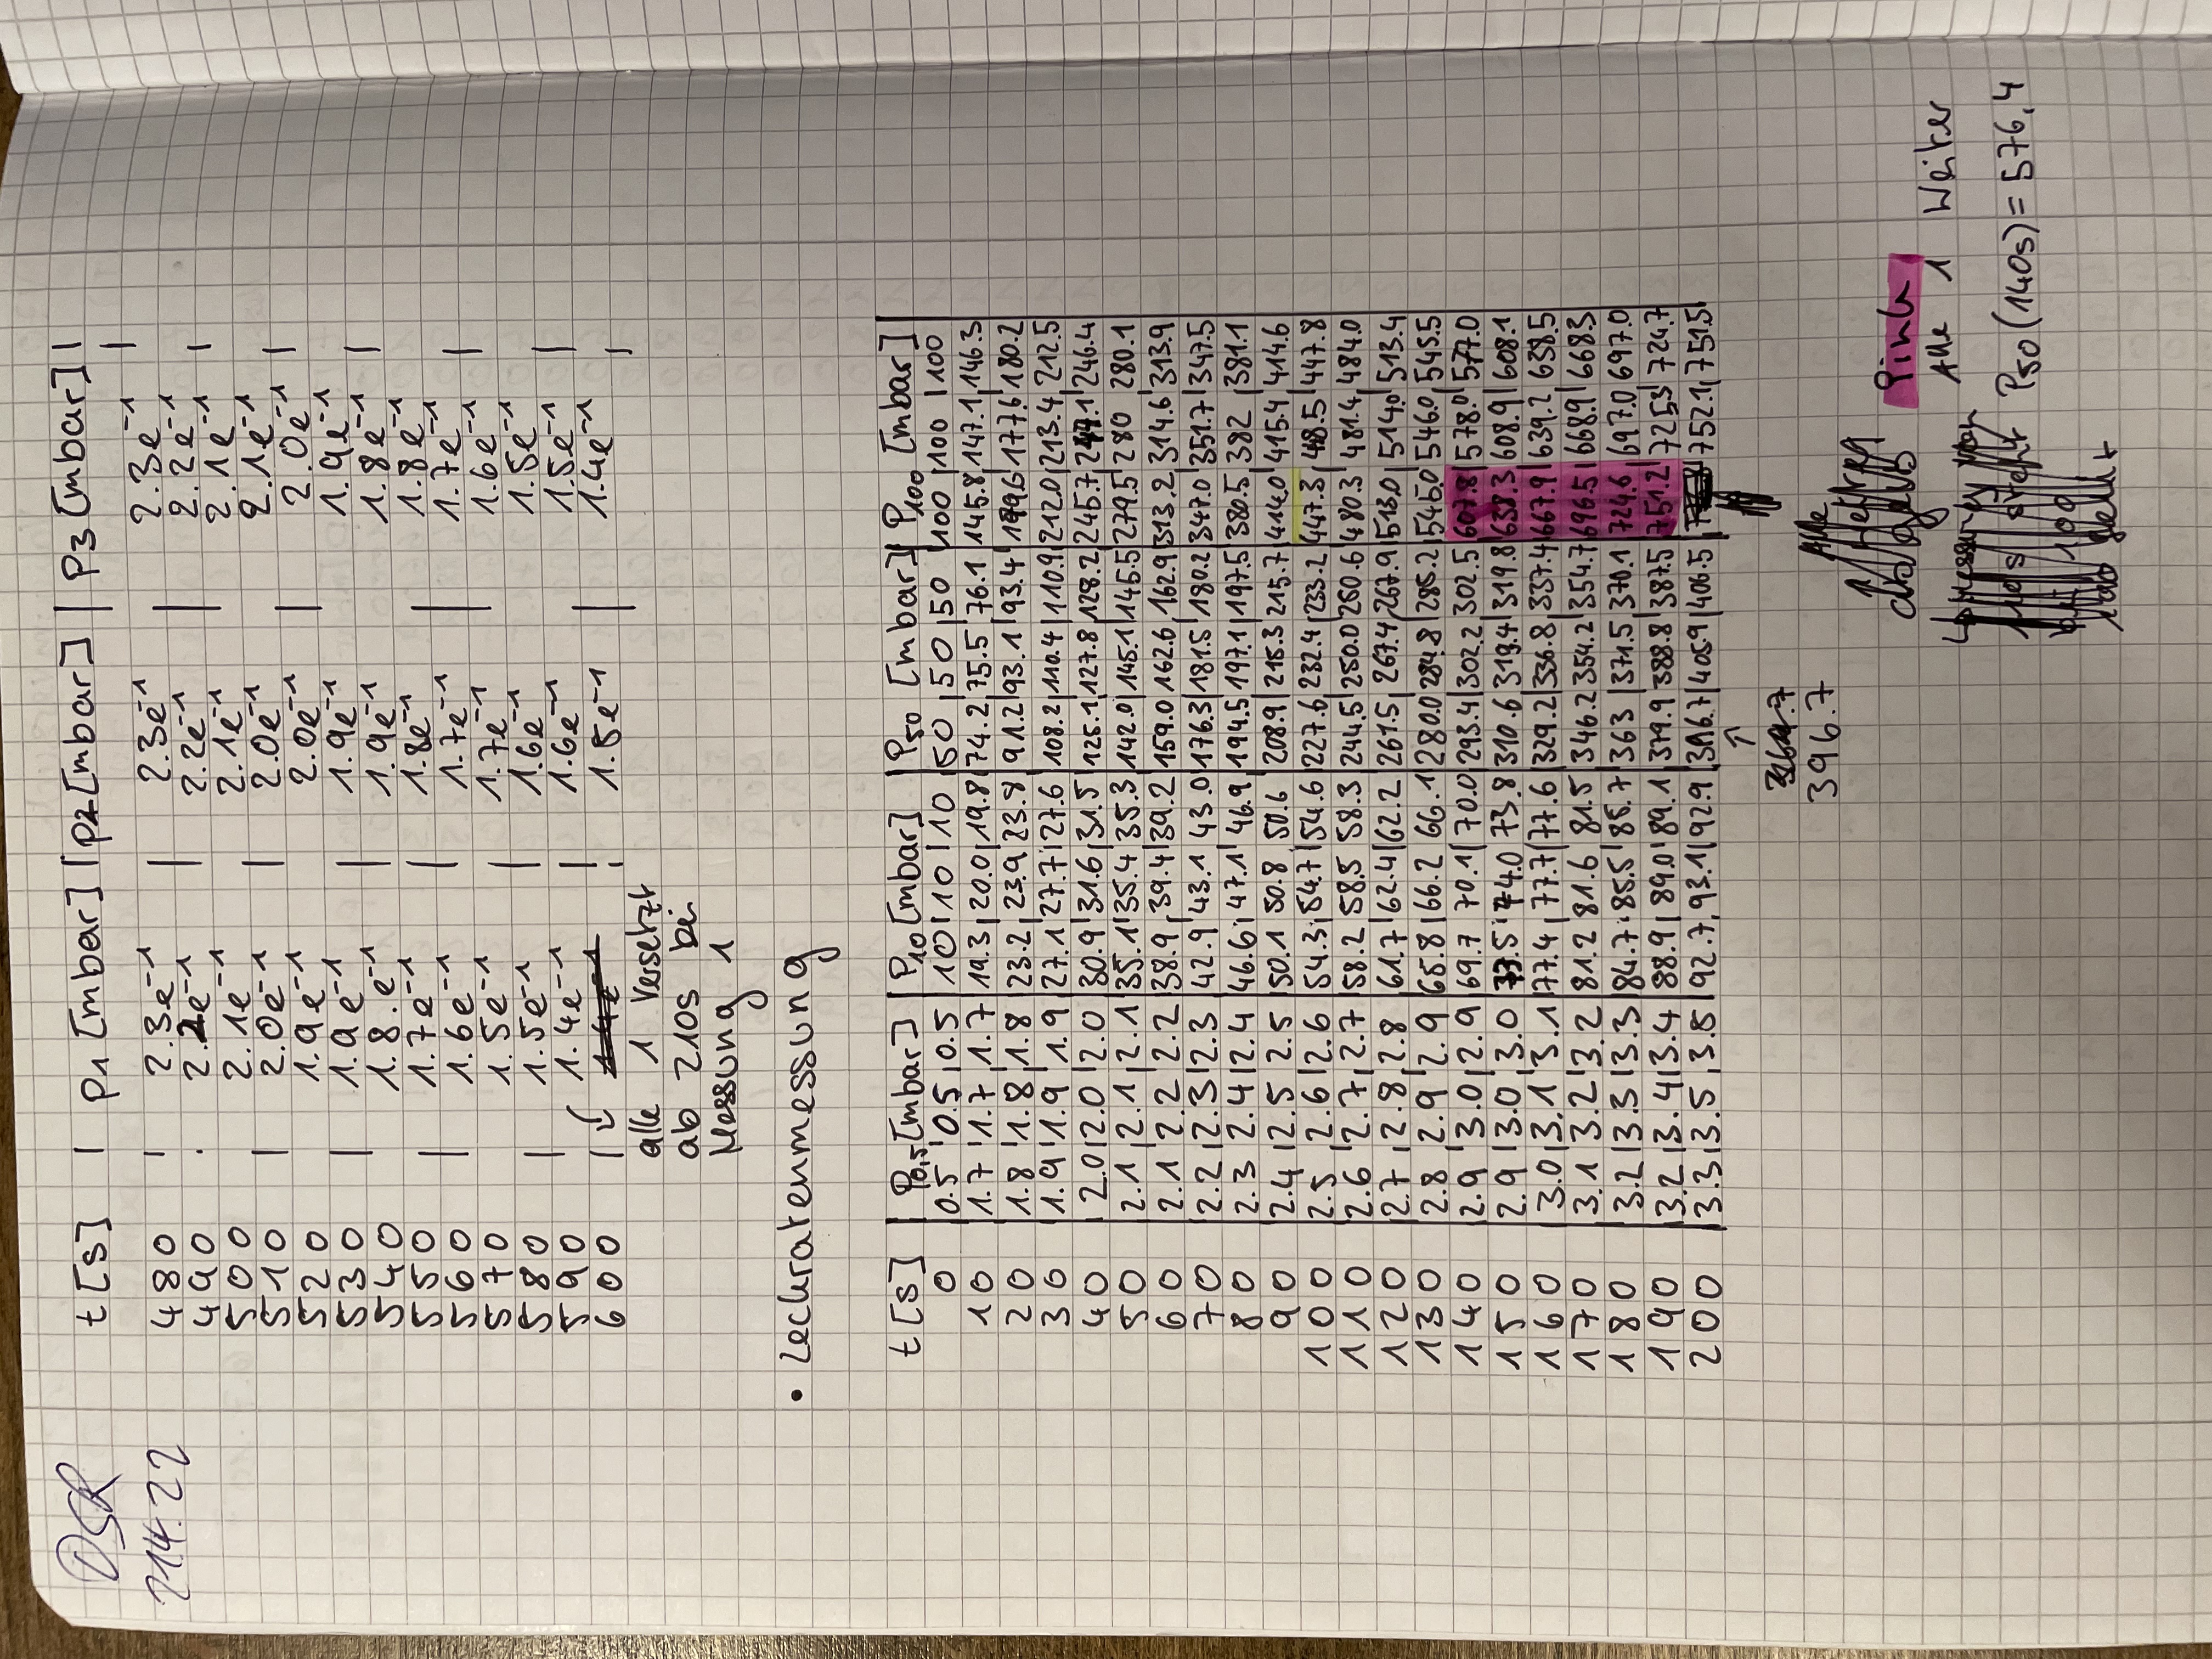 OSR
21.4.22
t [s] | p1 [mbar] | p2 [mbar] | p3 [mbar] |
480 | 2.3e⁻¹ | 2.3e⁻¹ | 2.3e⁻¹ |
490 | 2.2e⁻¹ | 2.2e⁻¹ | 2.2e⁻¹ |
500 | 2.1e⁻¹ | 2.1e⁻¹ | 2.1e⁻¹ |
510 | 2.0e⁻¹ | 2.0e⁻¹ | 2.1e⁻¹ |
520 | 1.9e⁻¹ | 2.0e⁻¹ | 2.0e⁻¹ |
530 | 1.9e⁻¹ | 1.9e⁻¹ | 1.9e⁻¹ |
540 | 1.8.e⁻¹ | 1.9e⁻¹ | 1.8e⁻¹ |
550 | 1.7e⁻¹ | 1.8e⁻¹ | 1.8e⁻¹ |
560 | 1.6e⁻¹ | 1.7e⁻¹ | 1.7e⁻¹ |
570 | 1.5e⁻¹ | 1.7e⁻¹ | 1.6e⁻¹ |
580 | 1.5e⁻¹ | 1.6e⁻¹ | 1.5e⁻¹ |
590 | 1.4e⁻¹ | 1.6e⁻¹ | 1.5e⁻¹ |
600 | 1.4e⁻¹ | 1.5e⁻¹ | 1.4e⁻¹ |
alle 1 versetzt
ab 210s bei
Messung 1
• Leckratenmessung
t [s] | P0,5 [mbar] | P10 [mbar] | P50 [mbar] | P100 [mbar] |
0 | 0.5 | 0.5 | 0.5 | 10 | 10 | 10 | 50 | 50 | 50 | 100 | 100 | 100
10 | 1.7 | 1.7 | 1.7 | 19.3 | 20.0 | 19.8 | 74.2 | 75.5 | 76.1 | 145.8 | 147.1 | 146.3
20 | 1.8 | 1.8 | 1.8 | 23.2 | 23.9 | 23.8 | 91.2 | 93.1 | 93.4 | 179.6 | 177.6 | 180.2
30 | 1.9 | 1.9 | 1.9 | 27.1 | 27.7 | 27.6 | 108.2 | 110.4 | 110.9 | 212.0 | 213.4 | 212.5
40 | 2.0 | 2.0 | 2.0 | 30.9 | 31.6 | 31.5 | 125.1 | 127.8 | 128.2 | 245.7 | 247.1 | 246.4
50 | 2.1 | 2.1 | 2.1 | 35.1 | 35.4 | 35.3 | 142.0 | 145.1 | 145.5 | 279.5 | 280 | 280.1
60 | 2.1 | 2.2 | 2.2 | 38.9 | 39.4 | 39.2 | 159.0 | 162.6 | 162.9 | 313.2 | 314.6 | 313.9
70 | 2.2 | 2.3 | 2.3 | 42.9 | 43.1 | 43.0 | 176.3 | 181.5 | 180.2 | 347.0 | 351.7 | 347.5
80 | 2.3 | 2.4 | 2.4 | 46.6 | 47.1 | 46.9 | 194.5 | 197.1 | 197.5 | 380.5 | 382 | 381.1
90 | 2.4 | 2.5 | 2.5 | 50.1 | 50.8 | 50.6 | 208.9 | 215.3 | 215.7 | 414.0 | 415.4 | 414.6
100 | 2.5 | 2.6 | 2.6 | 54.3 | 54.7 | 54.6 | 227.6 | 232.4 | 233.2 | 447.3 | 448.5 | 447.8
110 | 2.6 | 2.7 | 2.7 | 58.2 | 58.5 | 58.3 | 244.5 | 250.0 | 250.6 | 480.3 | 481.4 | 484.0
120 | 2.7 | 2.8 | 2.8 | 61.7 | 62.4 | 62.2 | 261.5 | 267.4 | 267.9 | 513.0 | 514.0 | 513.4
130 | 2.8 | 2.9 | 2.9 | 65.8 | 66.2 | 66.1 | 280.0 | 284.8 | 285.2 | 545.0 | 546.0 | 545.5
140 | 2.9 | 3.0 | 2.9 | 69.7 | 70.1 | 70.0 | 293.4 | 302.2 | 302.5 | 607.8 | 578.0 | 577.0
150 | 2.9 | 3.0 | 3.0 | 73.5 | 74.0 | 73.8 | 310.6 | 319.4 | 319.8 | 638.3 | 608.9 | 608.1
160 | 3.0 | 3.1 | 3.1 | 77.4 | 77.7 | 77.6 | 329.2 | 336.8 | 337.4 | 667.9 | 639.2 | 638.5
170 | 3.1 | 3.2 | 3.2 | 81.2 | 81.6 | 81.5 | 346.2 | 354.2 | 354.7 | 696.5 | 668.9 | 668.3
180 | 3.2 | 3.3 | 3.3 | 84.7 | 85.5 | 85.7 | 363 | 371.5 | 370.1 | 724.6 | 697.0 | 697.0
190 | 3.2 | 3.4 | 3.4 | 88.9 | 89.0 | 89.1 | 379.9 | 388.8 | 387.5 | 751.2 | 725.3 | 724.7
200 | 3.3 | 3.5 | 3.5 | 92.7 | 93.1 | 92.9 | 396.7 | 405.9 | 406.5 | 752.1 | 751.5
↑
396.7
Alle
ab gelb
Pink
Alle 1 Weiter
P50 (140s) = 576,4